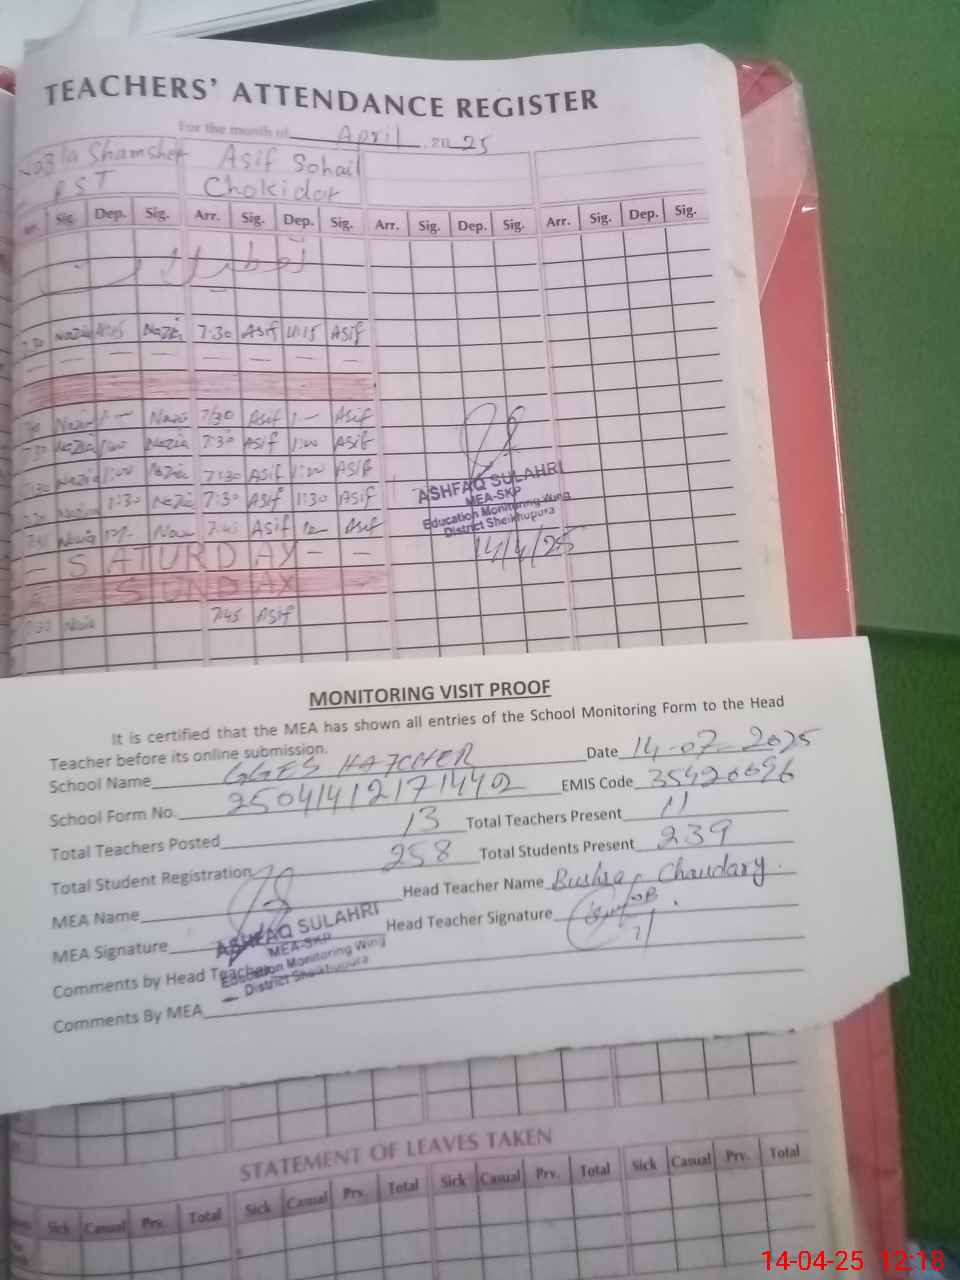 TEACHERS' ATTENDANCE REGISTER
For the month of April, 2025
Shamsher Asif Sohail
PST Chokidar
Arr. Sig. Dep. Sig. Arr. Sig. Dep. Sig. Arr. Sig. Dep. Sig. Arr. Sig. Dep. Sig.
تعطیلات
7:30 Nazia 11:15 Nazia 7:30 Asif 11:15 Asif
— — — — — — —
Nazia 1 — Nazia 7/30 Asif 1 — Asif
7:30 Nazia 1:00 Nazia 7:30 Asif 1:00 Asif
7:30 Nazia 1:00 Nazia 7:30 Asif 1:00 Asif
7:30 Nazia 1:30 Nazia 7:30 Asif 1:30 Asif
7:45 Nazia 12 — Nazia 7:45 Asif 12 — Asif
— SATURDAY — —
SUNDAY
7:30 Nazia 7:45 Asif
ASHFAQ SULAHRI
MEA-SKP
Education Monitoring Wing
District Sheikhupura
14/4/25
MONITORING VISIT PROOF
It is certified that the MEA has shown all entries of the School Monitoring Form to the Head
Teacher before its online submission.
Date 14-07-2025
School Name GGES HATCHER
EMIS Code 35420696
School Form No. 25041412171442
Total Teachers Posted 13 Total Teachers Present 11
Total Student Registration 258 Total Students Present 239
MEA Name Head Teacher Name Bushra Chaudary.
MEA Signature Head Teacher Signature
ASHFAQ SULAHRI
MEA-SKP
Education Monitoring Wing
District Sheikhupura
Comments by Head Teacher
Comments By MEA
STATEMENT OF LEAVES TAKEN
Sick Casual Prv. Total Sick Casual Prv. Total Sick Casual Prv. Total Sick Casual Prv. Total
14-04-25 12:18